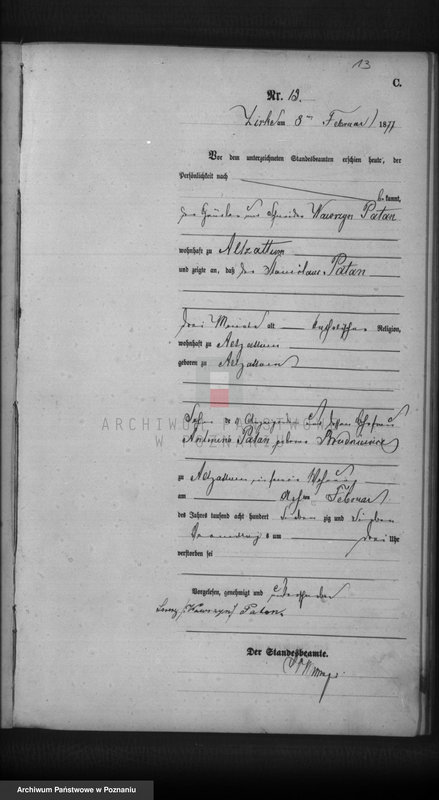 13
C.
Nr. 13.
Zirke am 8ten Februar 1877
Vor dem unterzeichneten Standesbeamten erschien heute, der
Persönlichkeit nach
be kannt,
der Häusler und Schneider Wawrzyn Patan
wohnhaft zu Altzattum
und zeigte an, daß der Stanislaus Patan
drei Monate alt katholischer Religion,
wohnhaft zu Altzattum
geboren zu Altzattum
Sohn des Anzeigenden und dessen Ehefrau
Antonina Patan geborene
zu Altzattum in seiner Wohnung
am achten Februar
des Jahres tausend acht hundert sieben zig und sieben
Vormittags um drei Uhr
verstorben sei
Vorgelesen, genehmigt und unterschrieben
Lorenz (Wawrzyn) Patan.
Der Standesbeamte.
ARCHIWUM PAŃSTWOWE
W POZNANIU
Archiwum Państwowe w Poznaniu